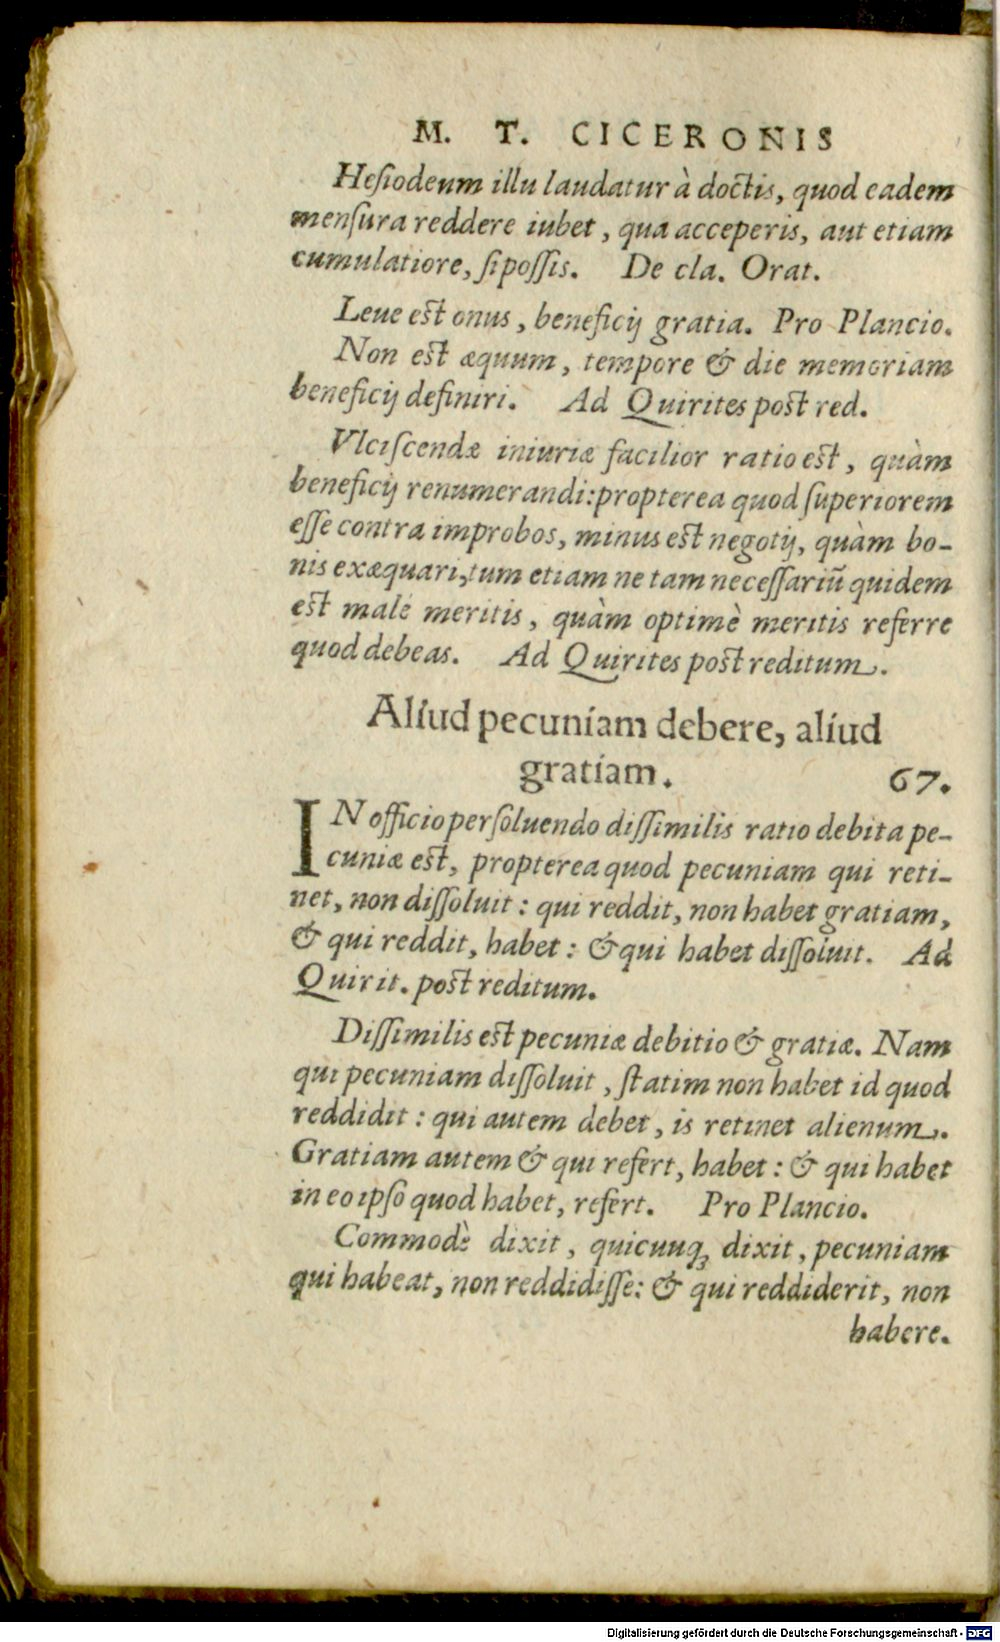 M. T. CICERONIS
Hesiodeum illu laudatur à doctis, quod eadem
mensura reddere iubet, qua acceperis, aut etiam
cumulatiore, si possis. De cla. Orat.
Leue est onus, beneficij gratia. Pro Plancio.
Non est æquum, tempore & die memoriam
beneficij definiri. Ad Quirites post red.
Vlciscendæ iniuriæ facilior ratio est, quàm
beneficij renumerandi: propterea quod superiorem
esse contra improbos, minus est negotij, quàm bo-
nis exæquari, tum etiam ne tam necessariū quidem
est malè meritis, quàm optimè meritis referre
quod debeas. Ad Quirites post reditum.
Aliud pecuniam debere, aliud
gratiam. 67.
IN officio persoluendo dissimilis ratio debita pe-
cuniæ est, propterea quod pecuniam qui reti-
net, non dissoluit: qui reddit, non habet gratiam,
& qui reddit, habet: & qui habet dissoluit. Ad
Quirit. post reditum.
Dissimilis est pecuniæ debitio & gratiæ. Nam
qui pecuniam dissoluit, statim non habet id quod
reddidit: qui autem debet, is retinet alienum.
Gratiam autem & qui refert, habet: & qui habet
in eo ipso quod habet, refert. Pro Plancio.
Commodè dixit, quicunq₃ dixit, pecuniam
qui habeat, non reddidisse: & qui reddiderit, non
habere.
Digitalisierung gefördert durch die Deutsche Forschungsgemeinschaft - DFG